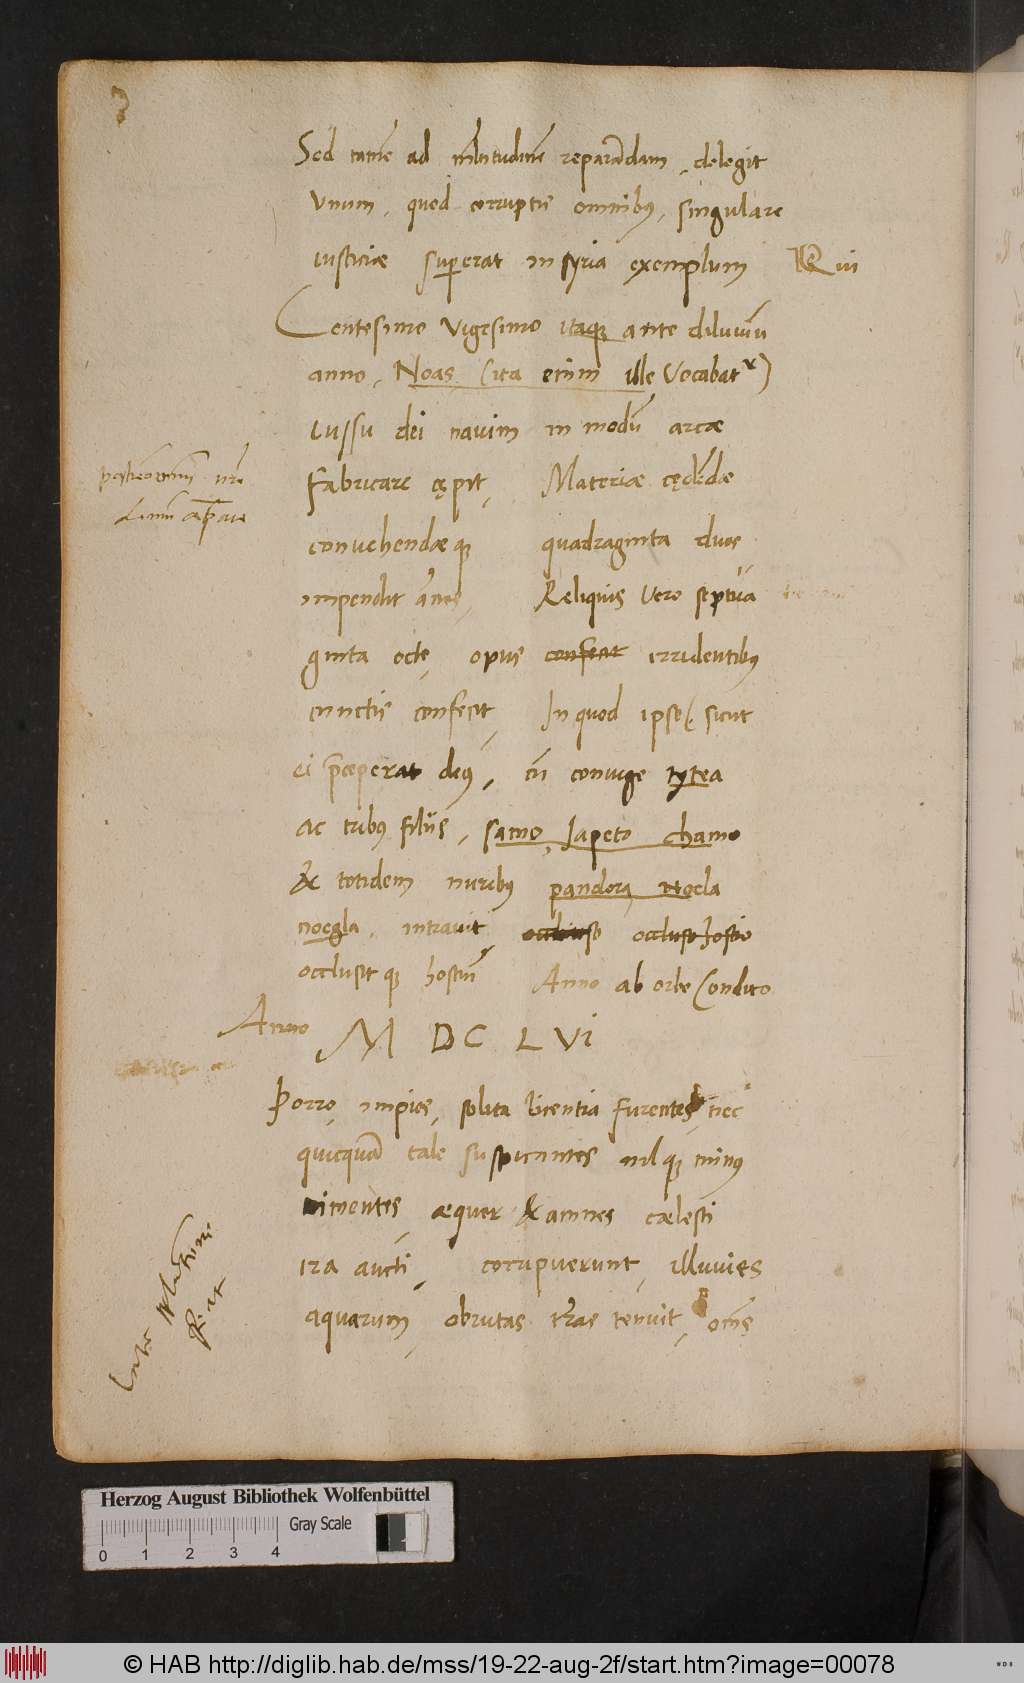 Sed tamē ad m̄ltitudinē reparādam, delegit
Vnum, quod corruptis omnibꝰ, singulare
iusticiæ superat in syria exemplum Qui
Centesimo Vigesimo itaqꝫ ante diluuiū
anno, Noas (ita enim ille Vocabatʳ)
iussu dei nauim in modū arcæ
Fabricare cępit, Materiæ cędēdæ
conuehendæqꝫ quadraginta duos
impendit ānos, Reliquis Vero septua
ginta octo, opus confecit irridentibꝰ
cunctis confecit, In quod ipse, sicut
ei p̄ceperat deꝰ, cū coniuge tytea
ac tribus filijs, samo, Iapeto chamo
& totidem nuribꝰ pandora, Noela
noegla, intrauit, occluso hostio
occlusitqꝫ hostiū Anno ab orbe Condito
Anno M DC L VI
Porro impios, solita licentia furentes, nec
quicquā tale suspicantes nilqꝫ minꝰ
timentes, æquor & amnes cælesti
ira aucti, corripuerunt, illuuies
aquarum, obrutas t̄ras tenuit, oēs
Herzog August Bibliothek Wolfenbüttel
Gray Scale
0 1 2 3 4
© HAB http://diglib.hab.de/mss/19-22-aug-2f/start.htm?image=00078